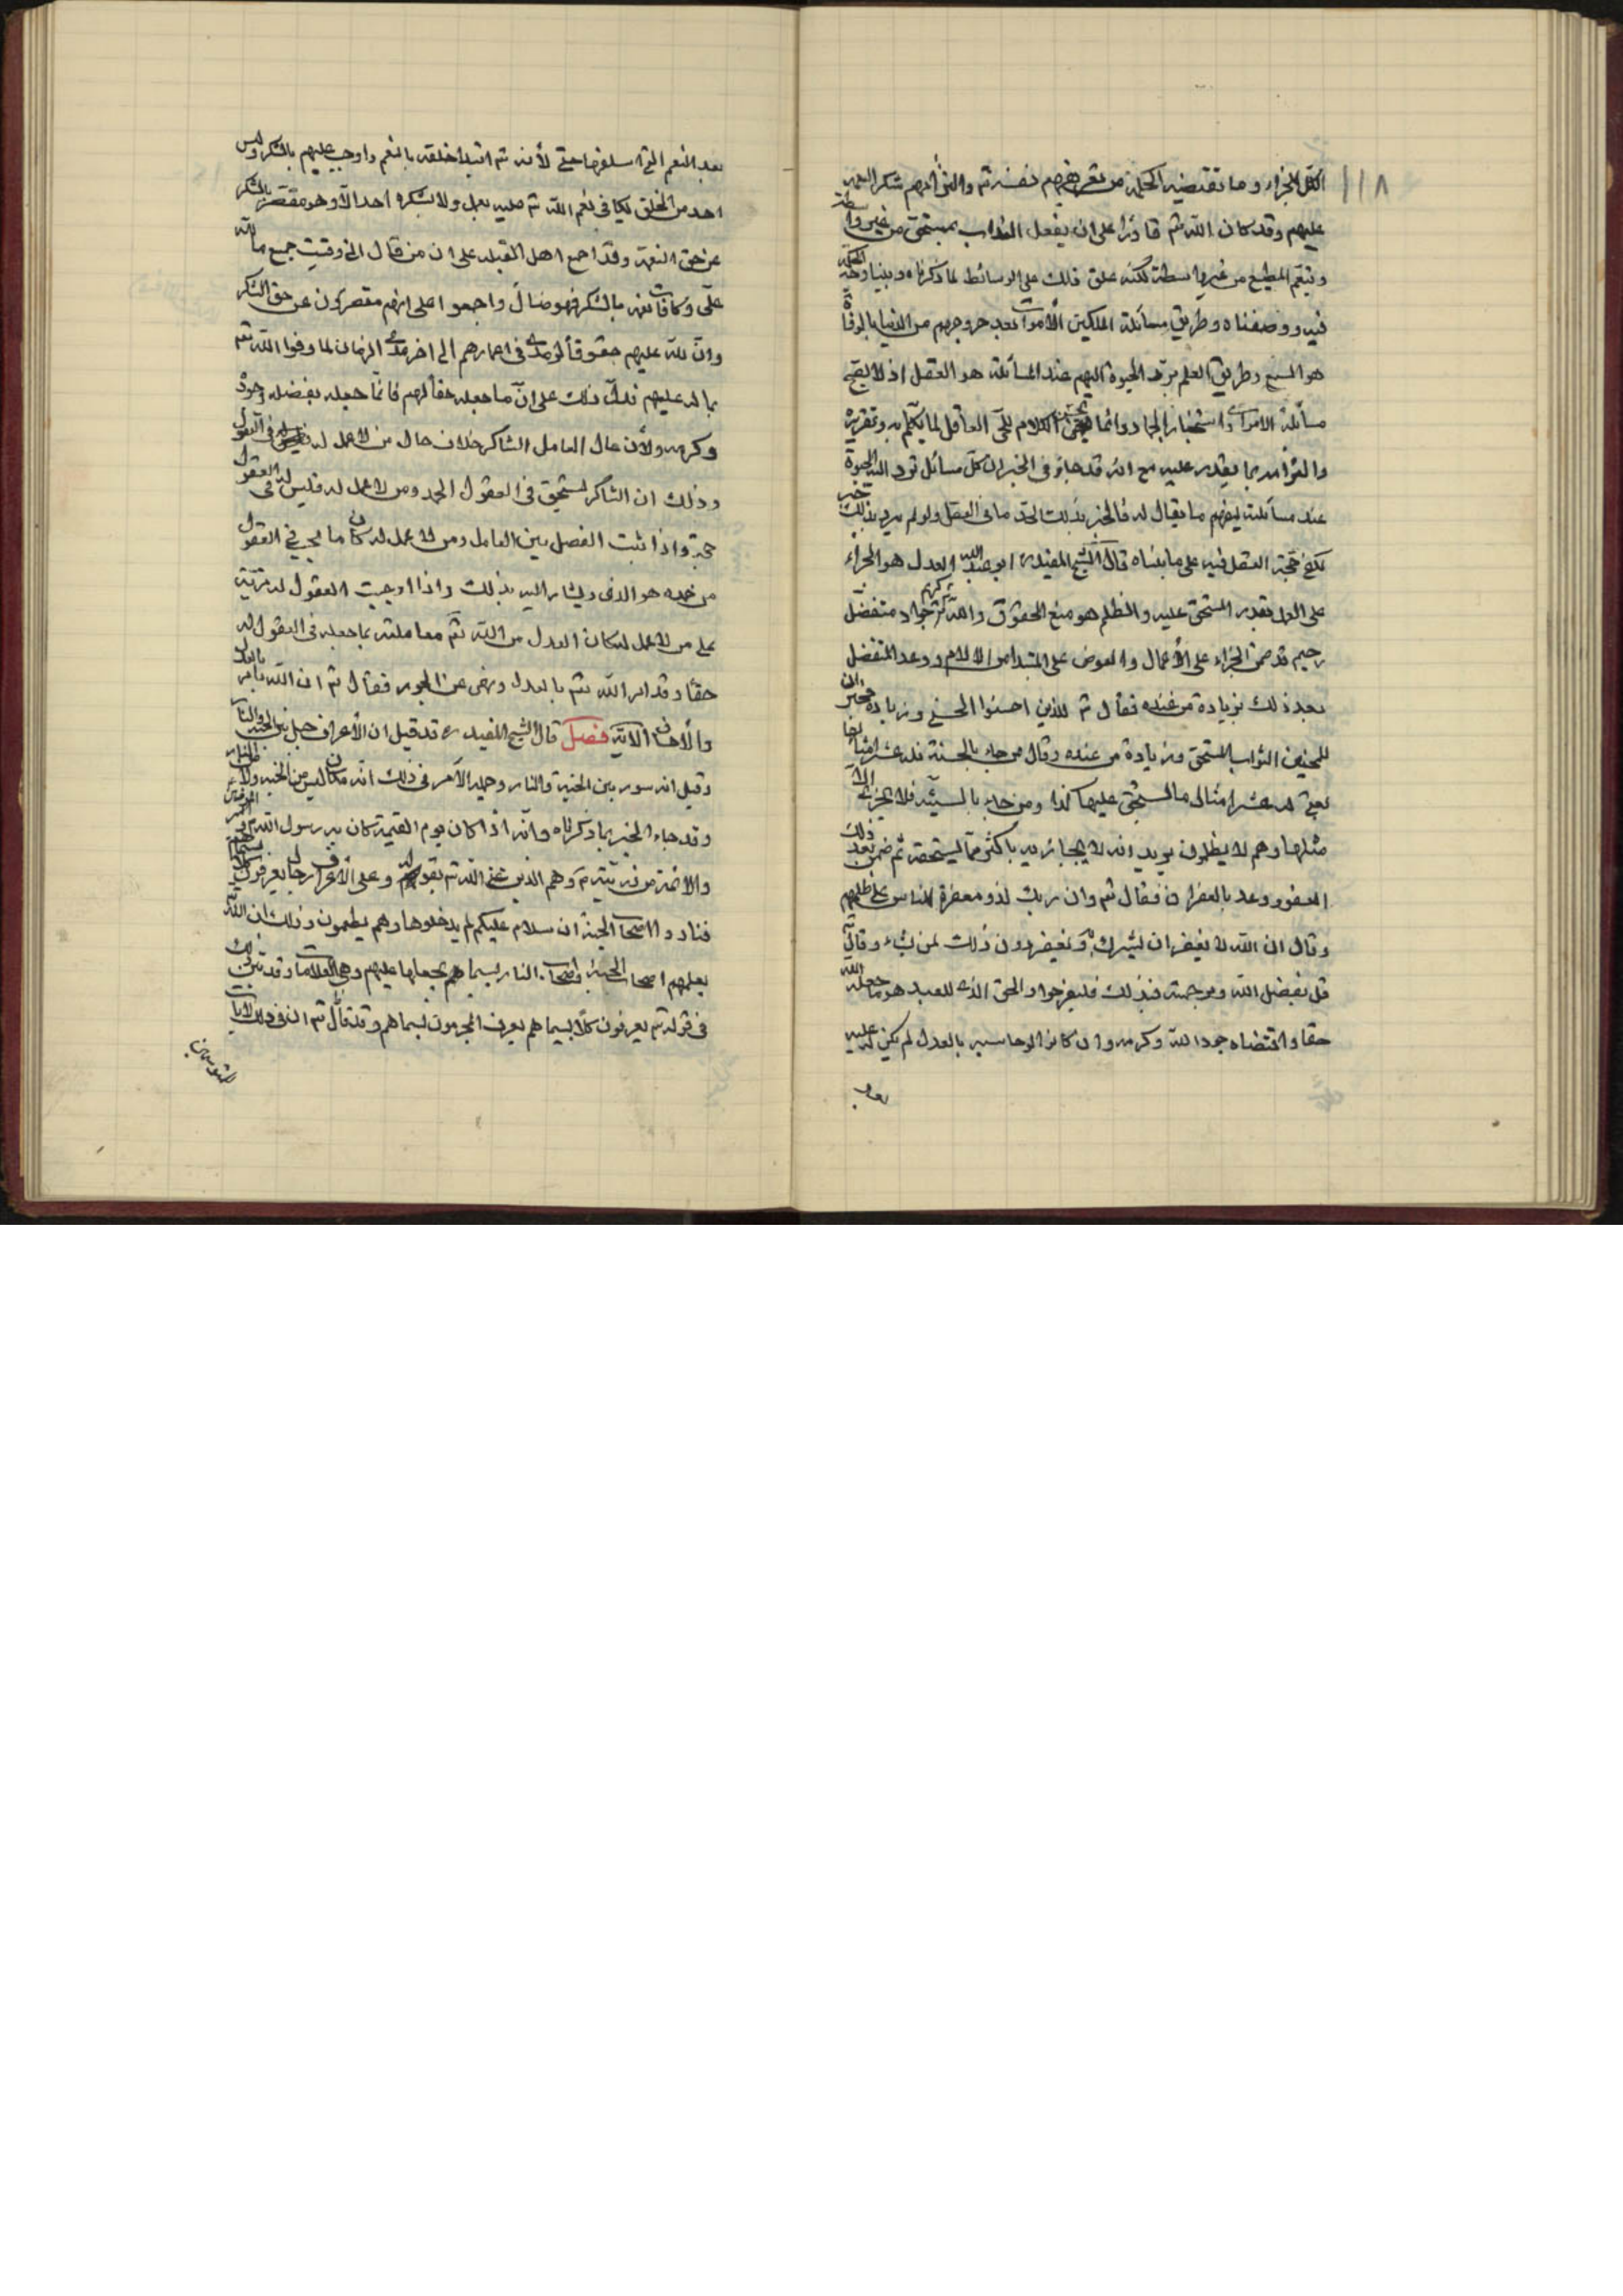 ١١٨
الكل الجزاء وما تقتضيه الحكمة من تعريضهم نفسه تم والتي الهم شكر النعمه
عليهم وقد كان الله تم قادرا على ان يفعل العذاب بمستحق من غير واسطة
وتنعم المطيع من غير واسطة لكنه علق ذلك على الوسائط لما ذكرناه وبينا وجه الحكمة
فيه ووصفناه وطريق مسائلة الملكين الأموات بعد خروجهم من الدنيا بالوفاة
هو السمع وطريق العلم برد الحيوة اليهم عند المسائلة هو العقل اذ لا يصح
مسائلة الاموات واستخبار الجماد وانما يحسن الكلام للحي العاقل لما يكلم به وتقريره
والزامه بما يقدر عليه مع انه قد جاء في الخبر ان كل مسائل ترد اليه الحيوة
عند مسائلته ليفهم ما يقال له فالخبر بذلك اكد ما في العقل ولو لم يرد بذلك خبر
لكفى حجة العقل فيه على ما بيناه قال الشيخ المفيد ره ابو عبد الله العدل هو الجزاء
على العمل بقدر المستحق عليه والظلم هو منع الحقوق والله تم كريم جواد متفضل
رحيم قد ضمن الجزاء على الأعمال والعوض على المبتدا من الالام ووعد التفضل
بعد ذلك بزيادة من عنده فقال تم للذين احسنوا الحسنى وزيادة فخبر ان
للمحسنين الثواب المستحق وزيادة من عنده وقال من جاء بالحسنة فله عشر امثالها
يعني له عشر امثال ما يستحق عليها كذا ومن جاء بالسيئه فلا يجزى الا
مثلها وهم لا يظلمون يريد انه لا يجازيه باكثر مما يستحقه ثم ضمن بعد ذلك
العفو ووعد بالغفران فقال تم وان ربك لذو مغفرة للناس على ظلمهم
وقال ان الله لا يغفر ان يشرك به ويغفر دون ذلك لمن يشاء وقال
قل بفضل الله وبرحمته فبذلك فليفرحوا والحق الذي للعبد هو ما جعله الله
حقا واقتضاه جود الله وكرمه وان كان لو حاسبه بالعدل لم يكن له عليه
بعد
بعد النعم التي اسلفها حق لأنه تم ابتدا خلقه بالنعم واوجب عليهم بالشكر وليس
احد من الخلق يكافي نعم الله تم عليه بعمل ولا يشكره احد الا وهو مقصر بالشكر
عن حق النعمة وقد اجمع اهل القبله على ان من قال اني وفيت جميع ما لله
علي وكافات نعمه بالشكر فهو ضال واجمعوا على انهم مقصرون عن حق الشكر
وان لله عليهم حقوقا لو مد في اعمارهم الى اخر مدى الزمان لما وفوا الله تم
بما له عليهم فدل ذلك على ان ما جعله حقا لهم فانما جعله بفضله وجوده
وكرمه ولأن حال العامل الشاكر خلاف حال من لا عمل له في العقول
وذلك ان الشاكر يستحق في العقول الحمد ومن لا عمل له فليس له في العقول
حمد واذا ثبت الفصل بين العامل ومن لا عمل له كان ما يجب في العقول
من حمده هو الذي ويشار اليه بذلك واذا اوجبت العقول له مزية
على من لا عمل له كان العدل من الله تم معاملته بما جعله في العقول له
حقا وقد امر الله تم بالعدل ونهى عن الجور فقال تم ان الله يأمر بالعدل
والاحسان الآية فصل قال الشيخ المفيد ره قد قيل ان الأعراف جبل بين الجنة والنار
وقيل انه سور بين الجنة والنار وجملة الأمر في ذلك انه مكان ليس من الجنة ولا من النار
وقد جاء الخبر بما ذكرناه وانه اذا كان يوم القيمة كان به رسول الله وامير المؤمنين
والأئمة من ذريته وهم الذين عنى الله تم بقوله وعلى الأعراف رجال يعرفون كلا بسيماهم
فنادوا اصحاب الجنة ان سلام عليكم لم يدخلوها وهم يطمعون وذلك ان الله
يعلمهم اصحاب الجنة واصحاب النار بسيما هم يجعلها عليهم وهي العلامات وقد بين ذلك
في قوله تم يعرفون كلا بسيماهم يعرف المجرمون بسيماهم وقد قال تم ان في ذلك لآيات
للمتوسمين